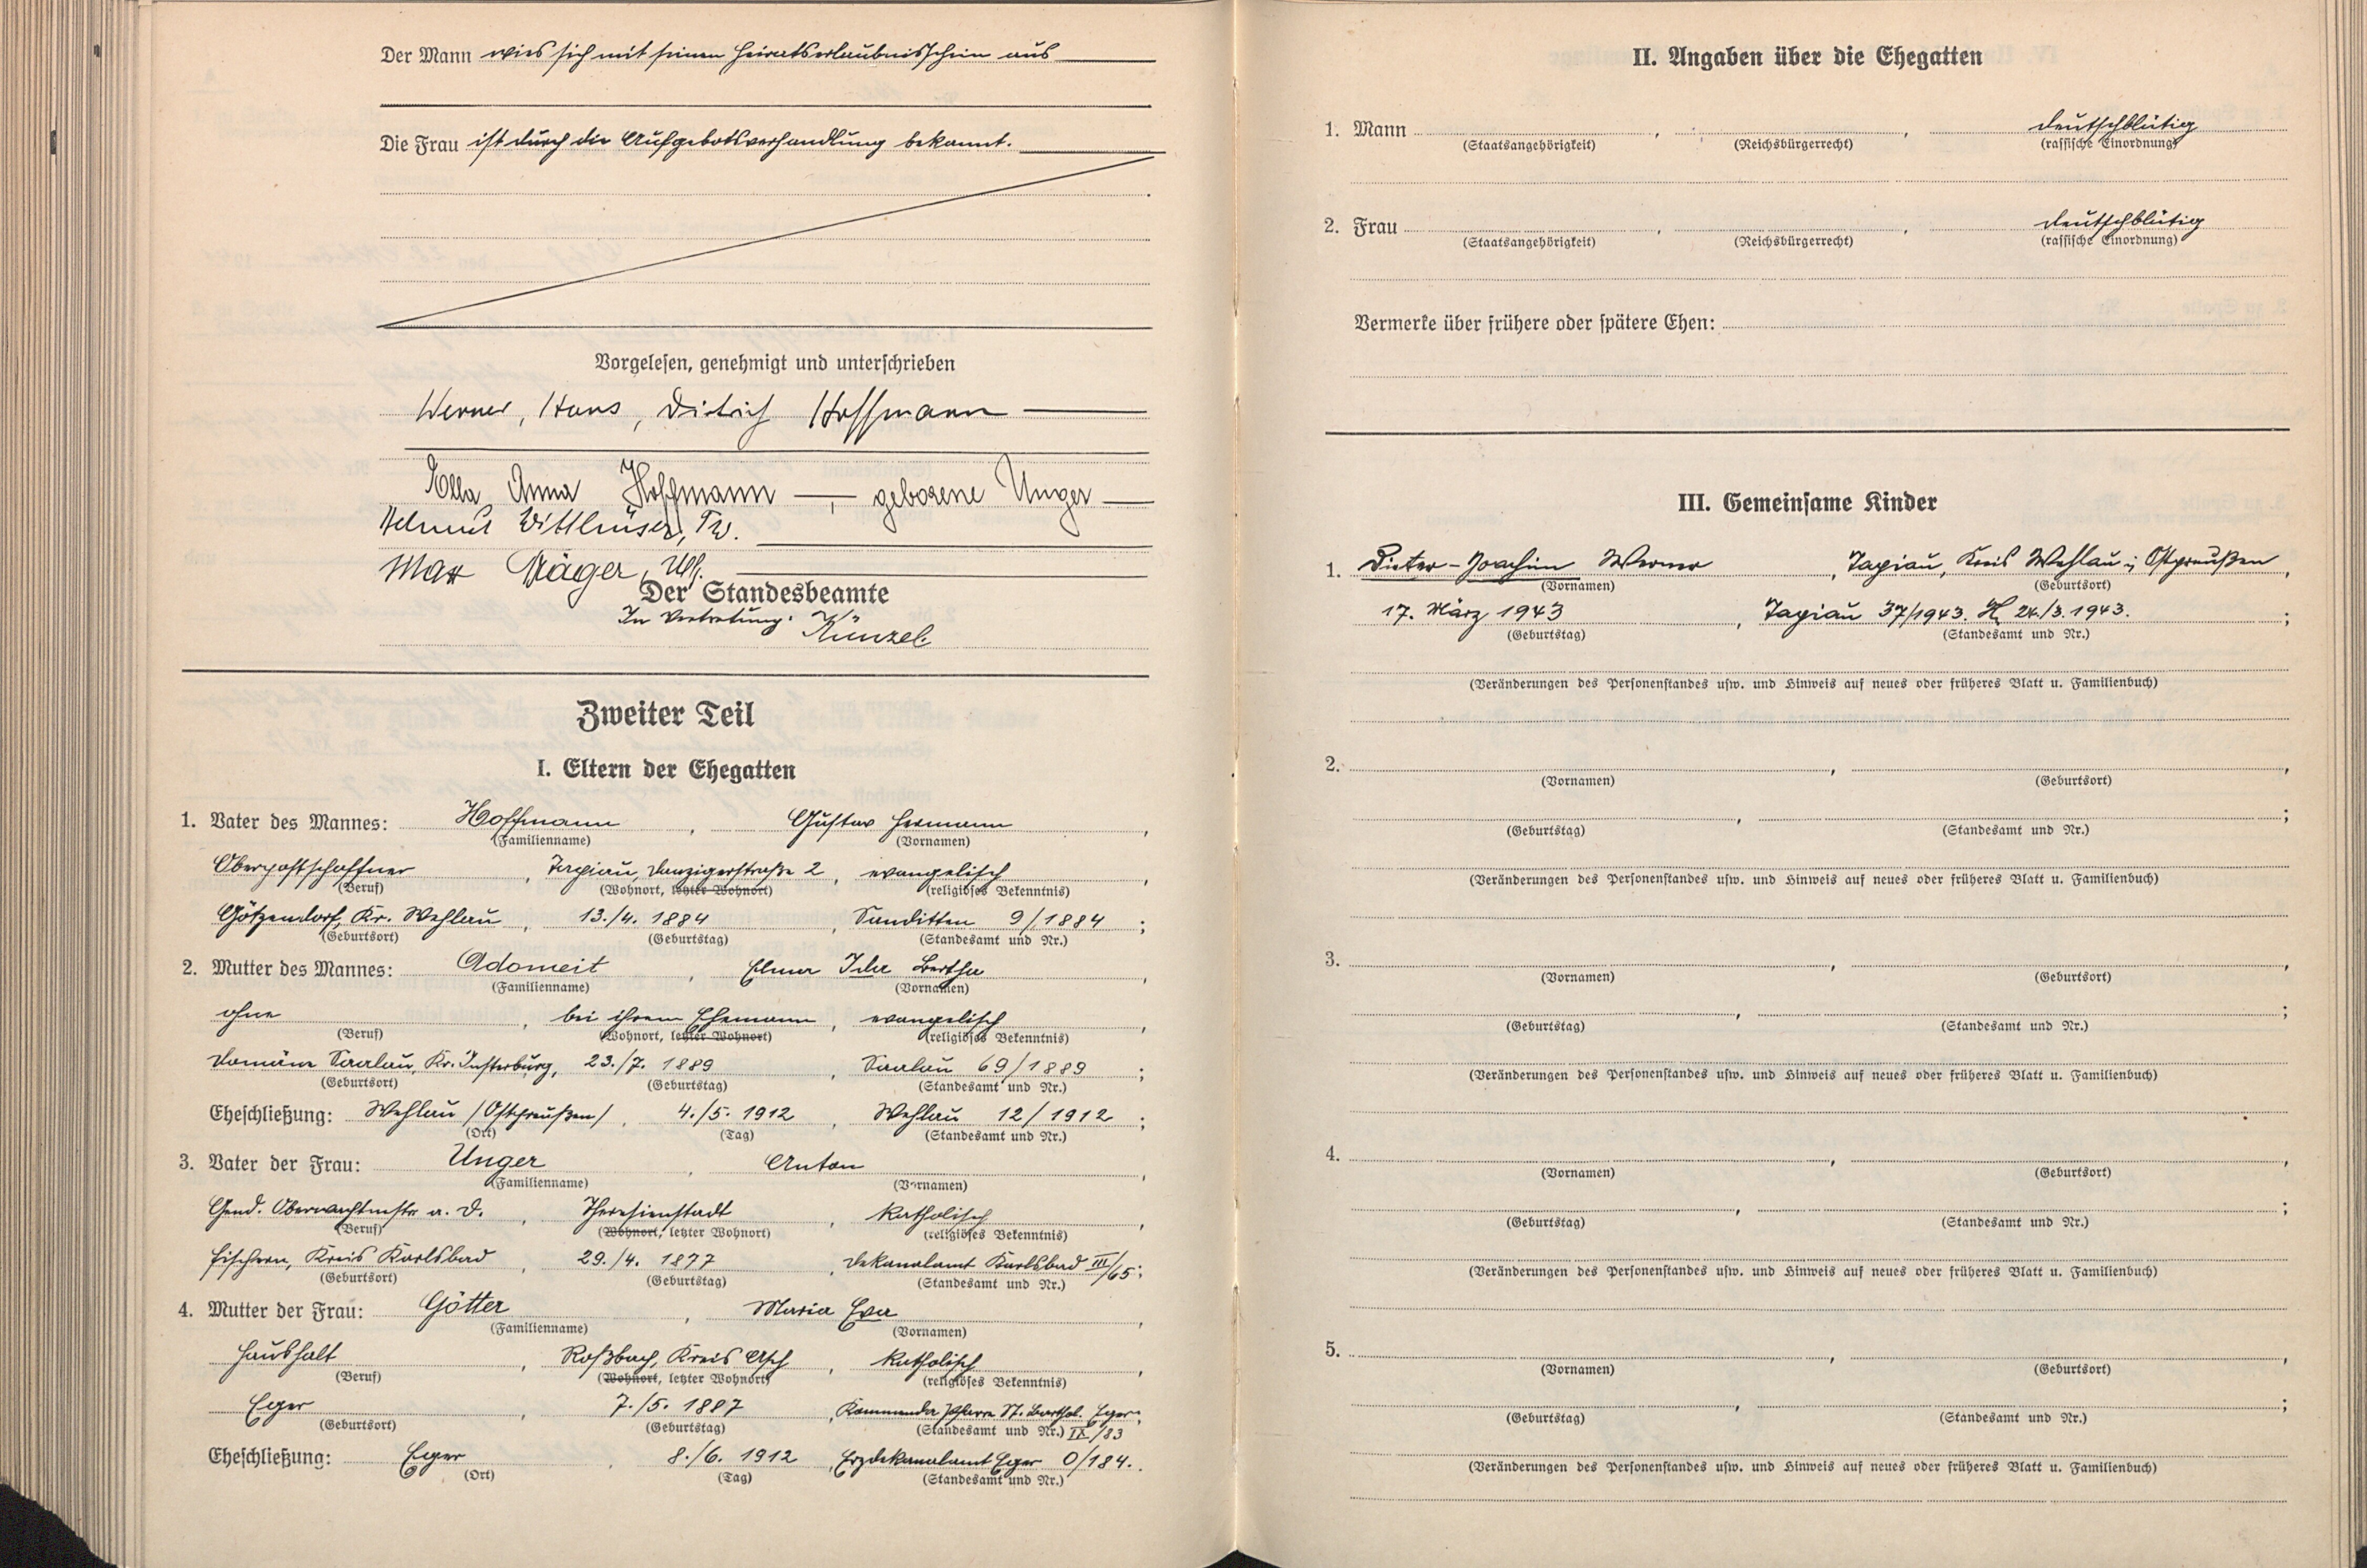 Der Mann wies sich mit seinem Heiratserlaubnisschein aus
Die Frau ist durch die Aufgebotsverhandlung bekannt.
Vorgelesen, genehmigt und unterschrieben
Werner, Hans, Dietrich Hoffmann
Ella Anna Hoffmann, geborene Unger
Helmut
Max
Der Standesbeamte
In Vertretung: Künzel
Zweiter Teil
I. Eltern der Ehegatten
1. Vater des Mannes: Hoffmann, Gustav Hermann,
(Familienname) (Vornamen)
Oberpostschaffner, Tapiau, Danzigerstraße 2, evangelisch,
(Beruf) (Wohnort, letzter Wohnort) (religiöses Bekenntnis)
Götzendorf, Kr. Wehlau, 13./4. 1884, Sanditten 9/1884;
(Geburtsort) (Geburtstag) (Standesamt und Nr.)
2. Mutter des Mannes: Adomeit, Ida Bertha,
(Familienname) (Vornamen)
ohne, bei ihrem Ehemann, evangelisch,
(Beruf) (Wohnort, letzter Wohnort) (religiöses Bekenntnis)
Domäne Saalau, Kr. Insterburg, 23./7. 1889, Saalau 69/1889;
(Geburtsort) (Geburtstag) (Standesamt und Nr.)
Eheschließung: Wehlau /Ostpreußen/, 4./5. 1912, Wehlau 12/1912;
(Ort) (Tag) (Standesamt und Nr.)
3. Vater der Frau: Unger, Anton,
(Familienname) (Vornamen)
Gend. Oberwachtmstr. a. D., Theresienstadt, katholisch,
(Beruf) (Wohnort, letzter Wohnort) (religiöses Bekenntnis)
Fischern, Kreis Karlsbad, 29./4. 1877, Dekanalamt Karlsbad III/65;
(Geburtsort) (Geburtstag) (Standesamt und Nr.)
4. Mutter der Frau: Götter, Maria Eva,
(Familienname) (Vornamen)
Haushalt, Roßbach, Kreis Asch, katholisch,
(Beruf) (Wohnort, letzter Wohnort) (religiöses Bekenntnis)
Eger, 7./5. 1887, St. Barthol. Eger;
(Geburtsort) (Geburtstag) (Standesamt und Nr.) IX/83
Eheschließung: Eger, 8./6. 1912, Erzdekanalamt Eger O/184.
(Ort) (Tag) (Standesamt und Nr.)
II. Angaben über die Ehegatten
1. Mann , , deutschblütig
(Staatsangehörigkeit) (Reichsbürgerrecht) (rassische Einordnung)
2. Frau , , deutschblütig
(Staatsangehörigkeit) (Reichsbürgerrecht) (rassische Einordnung)
Vermerke über frühere oder spätere Ehen:
III. Gemeinsame Kinder
1. Dieter-Joachim Werner, Tapiau, Kreis Wehlau i. Ostpreußen,
(Vornamen) (Geburtsort)
17. März 1943, Tapiau 37/1943. 24./3. 1943.;
(Geburtstag) (Standesamt und Nr.)
(Veränderungen des Personenstandes usw. und Hinweis auf neues oder früheres Blatt u. Familienbuch)
2. , ,
(Vornamen) (Geburtsort)
, ;
(Geburtstag) (Standesamt und Nr.)
(Veränderungen des Personenstandes usw. und Hinweis auf neues oder früheres Blatt u. Familienbuch)
3. , ,
(Vornamen) (Geburtsort)
, ;
(Geburtstag) (Standesamt und Nr.)
(Veränderungen des Personenstandes usw. und Hinweis auf neues oder früheres Blatt u. Familienbuch)
4. , ,
(Vornamen) (Geburtsort)
, ;
(Geburtstag) (Standesamt und Nr.)
(Veränderungen des Personenstandes usw. und Hinweis auf neues oder früheres Blatt u. Familienbuch)
5. , ,
(Vornamen) (Geburtsort)
, ;
(Geburtstag) (Standesamt und Nr.)
(Veränderungen des Personenstandes usw. und Hinweis auf neues oder früheres Blatt u. Familienbuch)